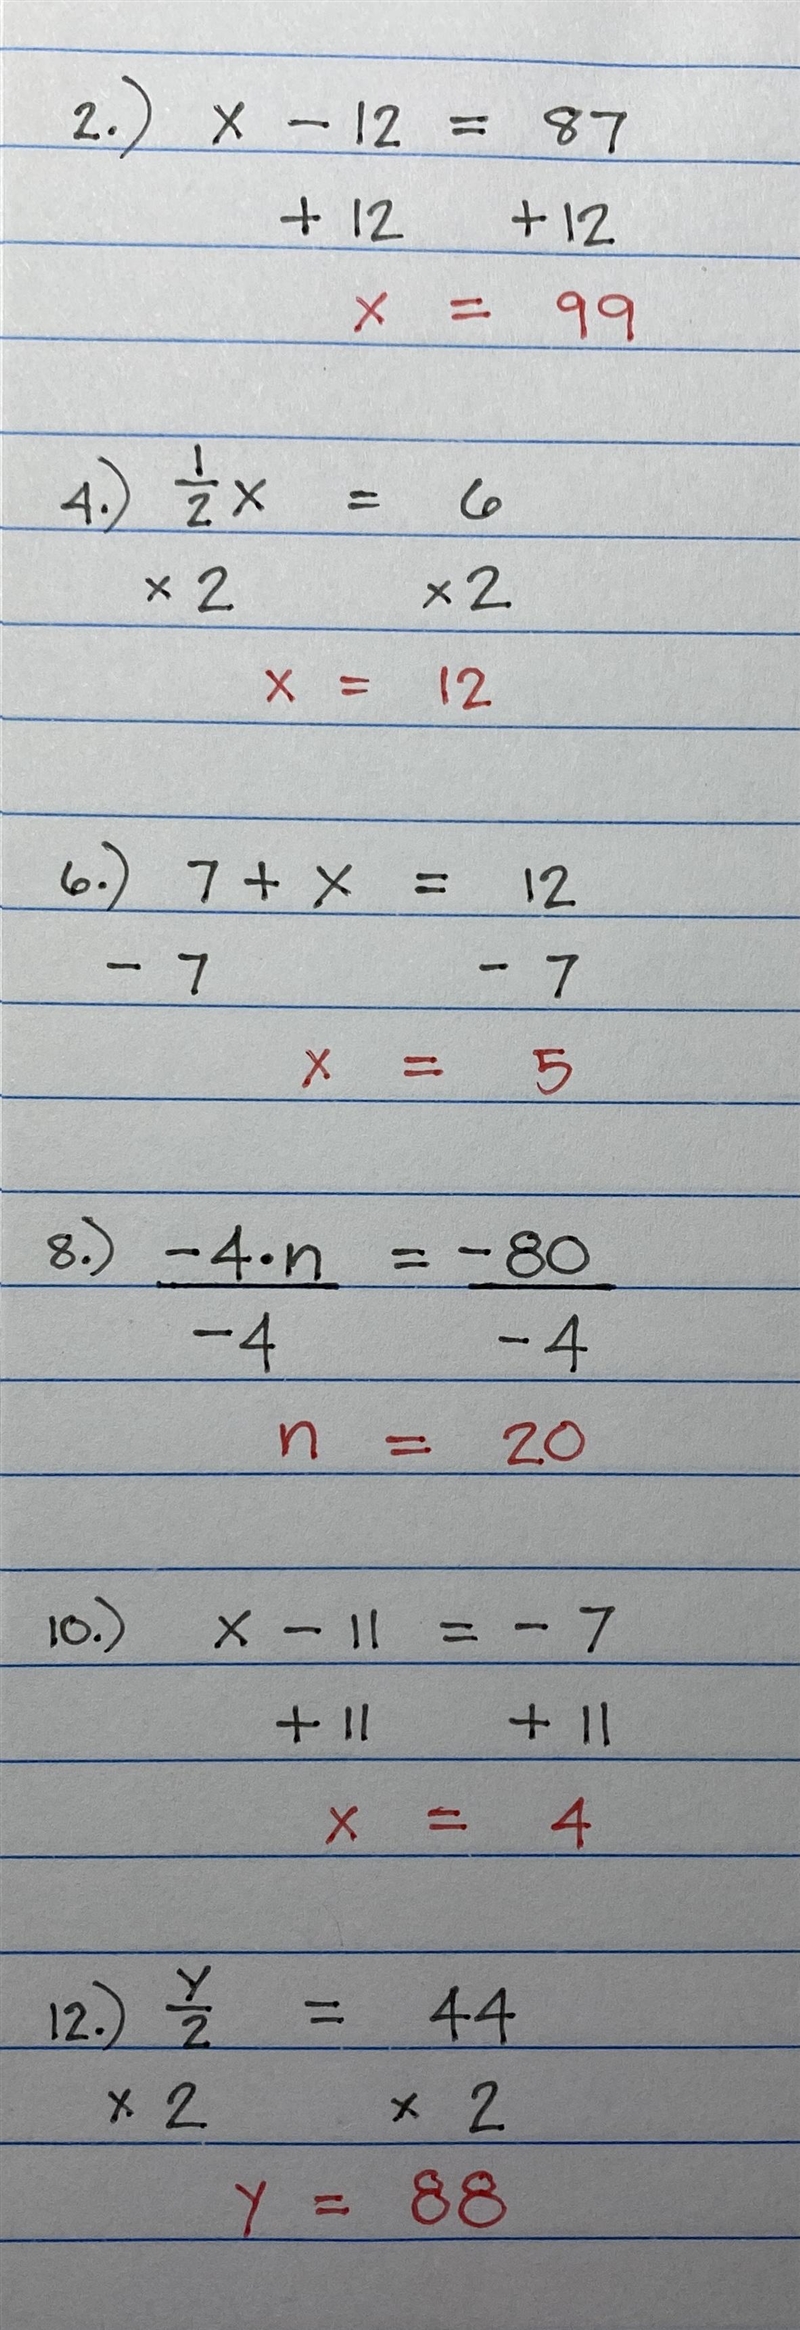 2.) x - 12 = 87
+ 12 + 12
x = 99
4.) 1/2 x = 6
x 2 x 2
x = 12
6.) 7 + x = 12
- 7 - 7
x = 5
8.) -4·n = -80
-4 -4
n = 20
10.) x - 11 = - 7
+ 11 + 11
x = 4
12.) y/2 = 44
x 2 x 2
y = 88